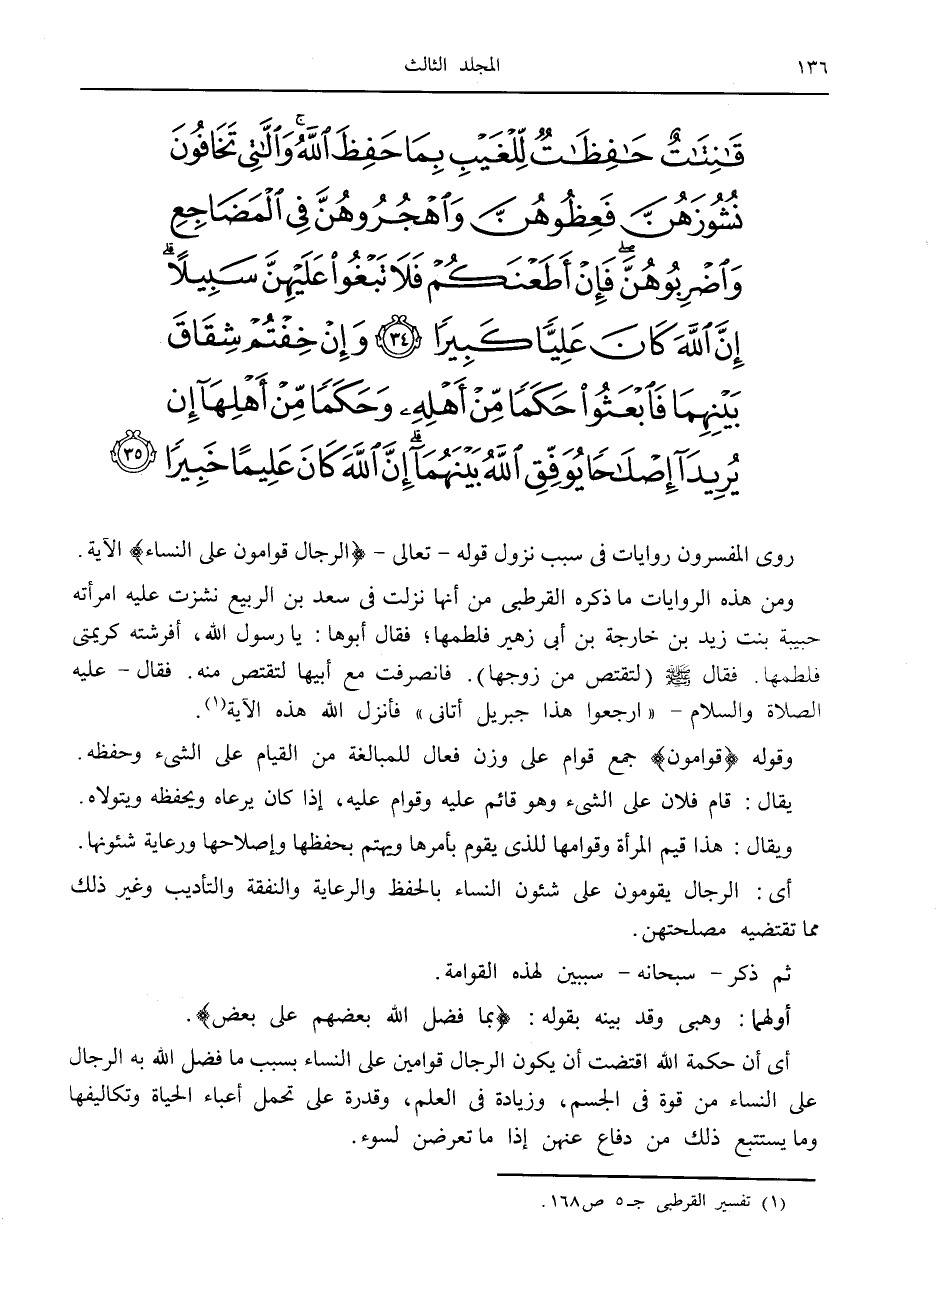 ١٣٦
المجلد الثالث
قَٰنِتَٰتٌ حَٰفِظَٰتٌ لِّلْغَيْبِ بِمَا حَفِظَ ٱللَّهُ ۚ وَٱلَّٰتِى تَخَافُونَ
نُشُوزَهُنَّ فَعِظُوهُنَّ وَٱهْجُرُوهُنَّ فِى ٱلْمَضَاجِعِ
وَٱضْرِبُوهُنَّ ۖ فَإِنْ أَطَعْنَكُمْ فَلَا تَبْغُوا۟ عَلَيْهِنَّ سَبِيلًا ۗ
إِنَّ ٱللَّهَ كَانَ عَلِيًّا كَبِيرًا ٣٤ وَإِنْ خِفْتُمْ شِقَاقَ
بَيْنِهِمَا فَٱبْعَثُوا۟ حَكَمًا مِّنْ أَهْلِهِۦ وَحَكَمًا مِّنْ أَهْلِهَآ إِن
يُرِيدَآ إِصْلَٰحًا يُوَفِّقِ ٱللَّهُ بَيْنَهُمَآ ۗ إِنَّ ٱللَّهَ كَانَ عَلِيمًا خَبِيرًا ٣٥
روى المفسرون روايات فى سبب نزول قوله - تعالى - ﴿الرجال قوامون على النساء﴾ الآية.
ومن هذه الروايات ما ذكره القرطبى من أنها نزلت فى سعد بن الربيع نشزت عليه امرأته
حبيبة بنت زيد بن خارجة بن أبى زهير فلطمها؛ فقال أبوها : يا رسول الله، أفرشته كريمتى
فلطمها. فقال ﷺ (لتقتص من زوجها). فانصرفت مع أبيها لتقتص منه. فقال - عليه
الصلاة والسلام - « ارجعوا هذا جبريل أتانى » فأنزل الله هذه الآية(١).
وقوله ﴿قوامون﴾ جمع قوام على وزن فعال للمبالغة من القيام على الشىء وحفظه.
يقال : قام فلان على الشىء وهو قائم عليه وقوام عليه، إذا كان يرعاه ويحفظه ويتولاه.
ويقال : هذا قيم المرأة وقوامها للذى يقوم بأمرها ويهتم بحفظها وإصلاحها ورعاية شئونها.
أى : الرجال يقومون على شئون النساء بالحفظ والرعاية والنفقة والتأديب وغير ذلك
مما تقتضيه مصلحتهن.
ثم ذكر - سبحانه - سببين لهذه القوامة.
أولهما : وهبى وقد بينه بقوله : ﴿بما فضل الله بعضهم على بعض﴾.
أى أن حكمة الله اقتضت أن يكون الرجال قوامين على النساء بسبب ما فضل الله به الرجال
على النساء من قوة فى الجسم، وزيادة فى العلم، وقدرة على تحمل أعباء الحياة وتكاليفها
وما يستتبع ذلك من دفاع عنهن إذا ما تعرضن لسوء.
(١) تفسير القرطبى جـ ٥ ص ١٦٨.